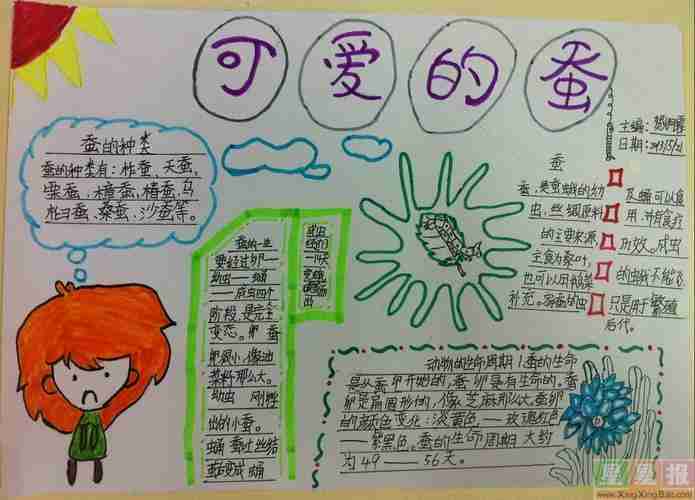 可爱的蚕
主编:
日期:
蚕的种类
蚕的种类有:柞蚕、天蚕,
栗蚕、樟蚕、椿蚕、马
桑蚕、沙蚕等。
蚕的一生
要经过卵一
幼虫——蛹
——成虫四个
阶段,是完全
变态。卵 蚕
卵很小,像油
菜籽那么大。
幼虫 刚孵
出的小蚕。
蛹 蚕吐丝结
茧变成 蛹
成虫
一样
蚕
蚕,是蚕蛾的幼
虫,丝绸原料
的主要来源,
主食为桑叶,
补充。
及蛹可以食
用,并有食疗
功效。成虫
的蚕蛾不能飞,
只是用于繁殖
后代。
动物的生命周期1.蚕的生命
是从蚕卵开始的,蚕卵是有生命的,蚕
卵是扁圆形的,像芝麻那么大,蚕卵
的颜色变化:淡黄色——玫瑰红色
——紫黑色。蚕的生命周期 大约
为49——56天。
星星报
www.XingXingBao.com